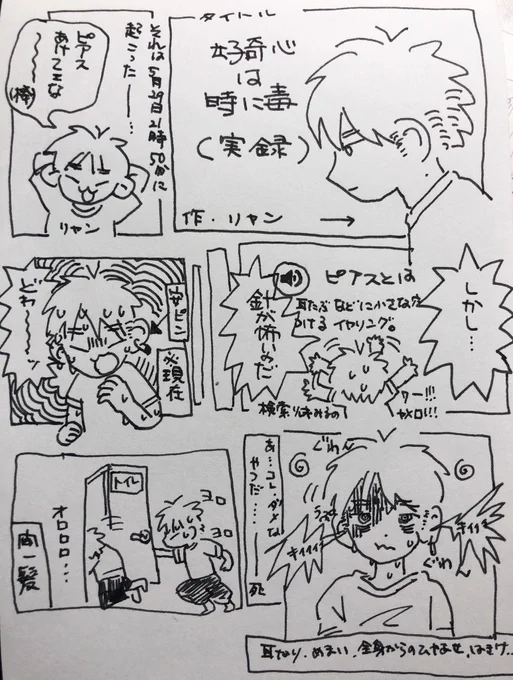 タイトル
好奇心
は
時に毒
(実録)
作・リャン
それは5月29日21時50分に
起こった―――…
ピアス
あけてェな
〜〜〜
(棒)
リャン
しかし…
ピアスとは
耳たぶなどに小さな穴
かける イヤリング。
針が怖いのだ
ワー!!!
ヤメロ!!!
安ピン
※現在
どわーーッ
あ…コレ、ダメな
やつだ……
死
ぐわん
キィィィ
キィィィ
ぐわ
耳なり、めまい、全身からのひやあせ、はきけ…
トイレ
ヨロ
ヨロ
オロロロ…
間一髪